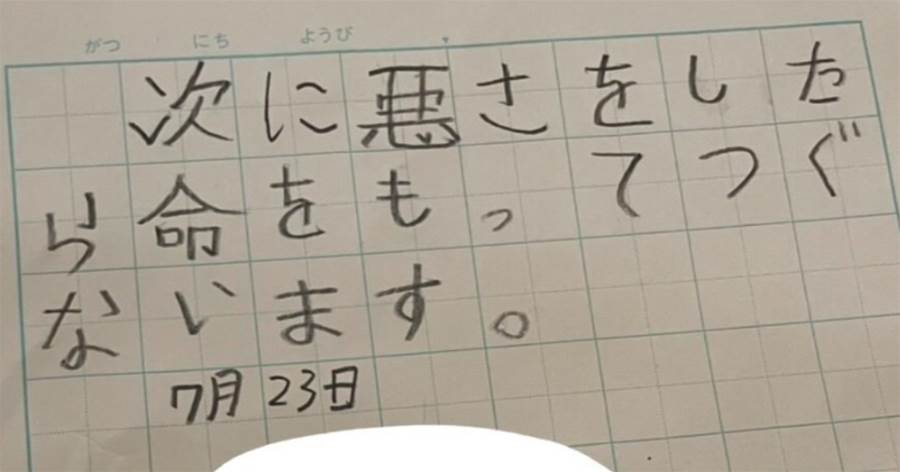 がつ にち ようび
次に悪さをした
ら命をもってつぐ
ないます。
7月23日